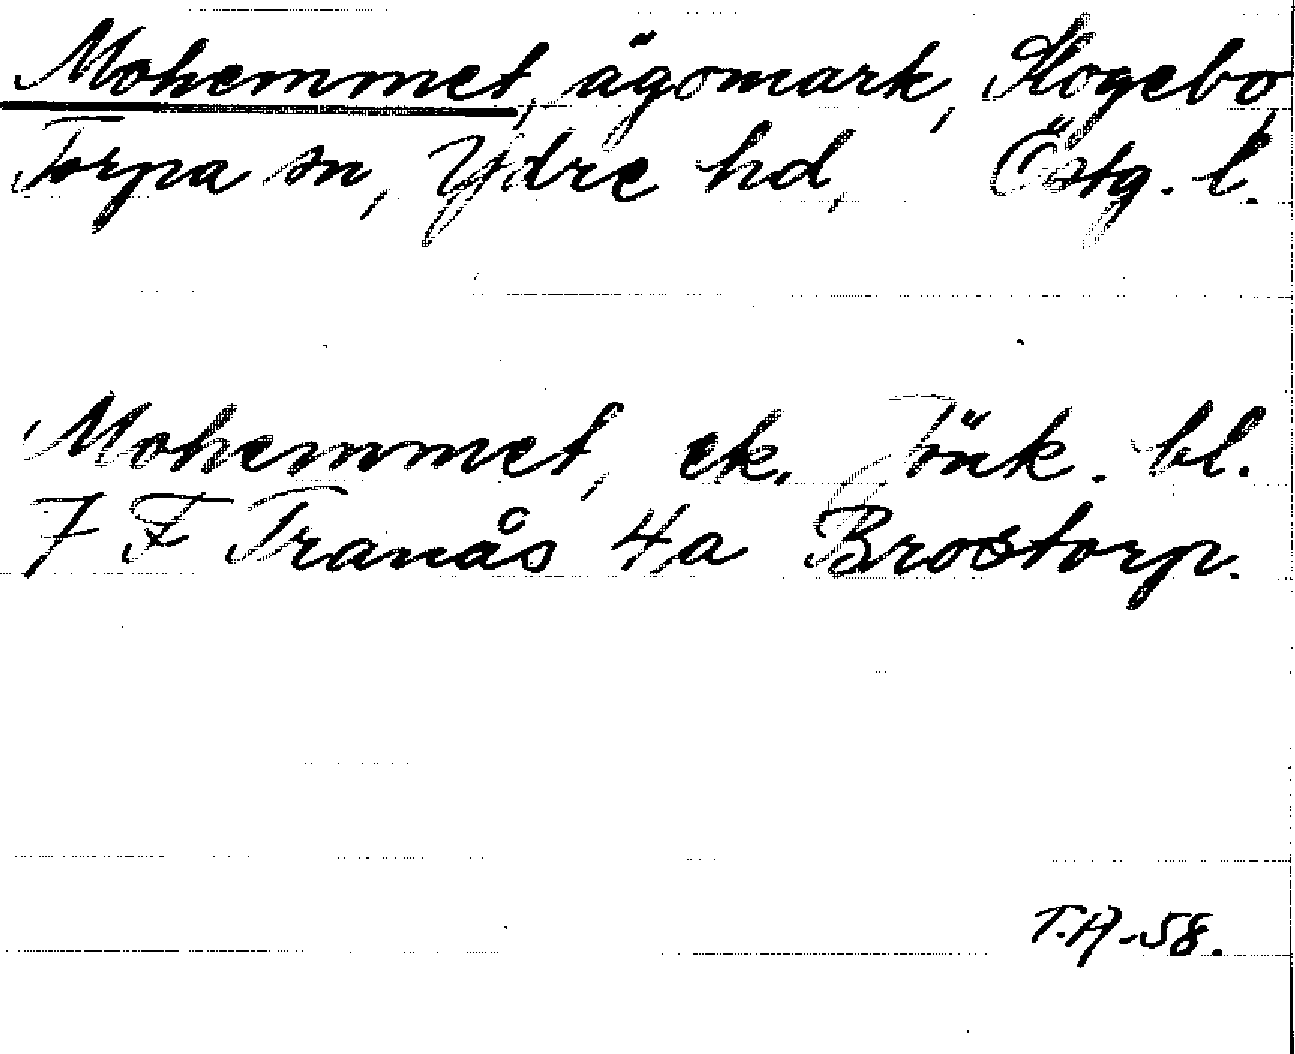 Mohemmet, ägomark, Skogebo
Torpa sn, Ydre hd, Östg. l.
Mohemmet, ek. Jönk. bl.
7 F Tranås 4a Brostorp.
T.A-58.